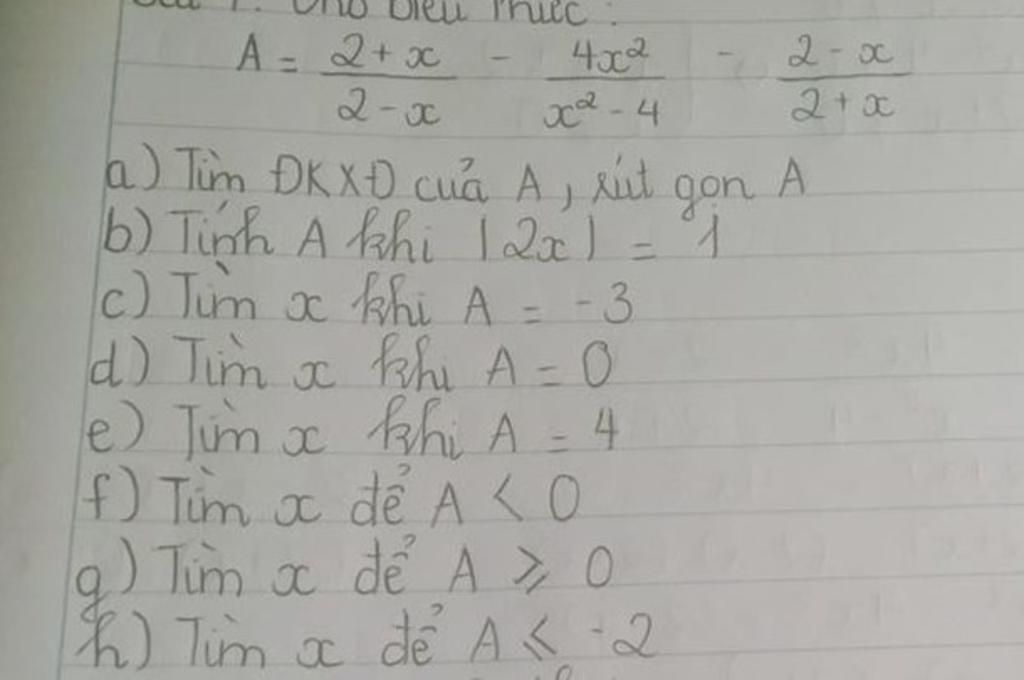 Cho biểu thức:
A = \frac{2+x}{2-x} - \frac{4x^2}{x^2-4} - \frac{2-x}{2+x}
a) Tìm ĐKXĐ của A, rút gọn A
b) Tính A khi |2x| = 1
c) Tìm x khi A = -3
d) Tìm x khi A = 0
e) Tìm x khi A = 4
f) Tìm x để A < 0
g) Tìm x để A ⩾ 0
h) Tìm x để A ⩽ -2